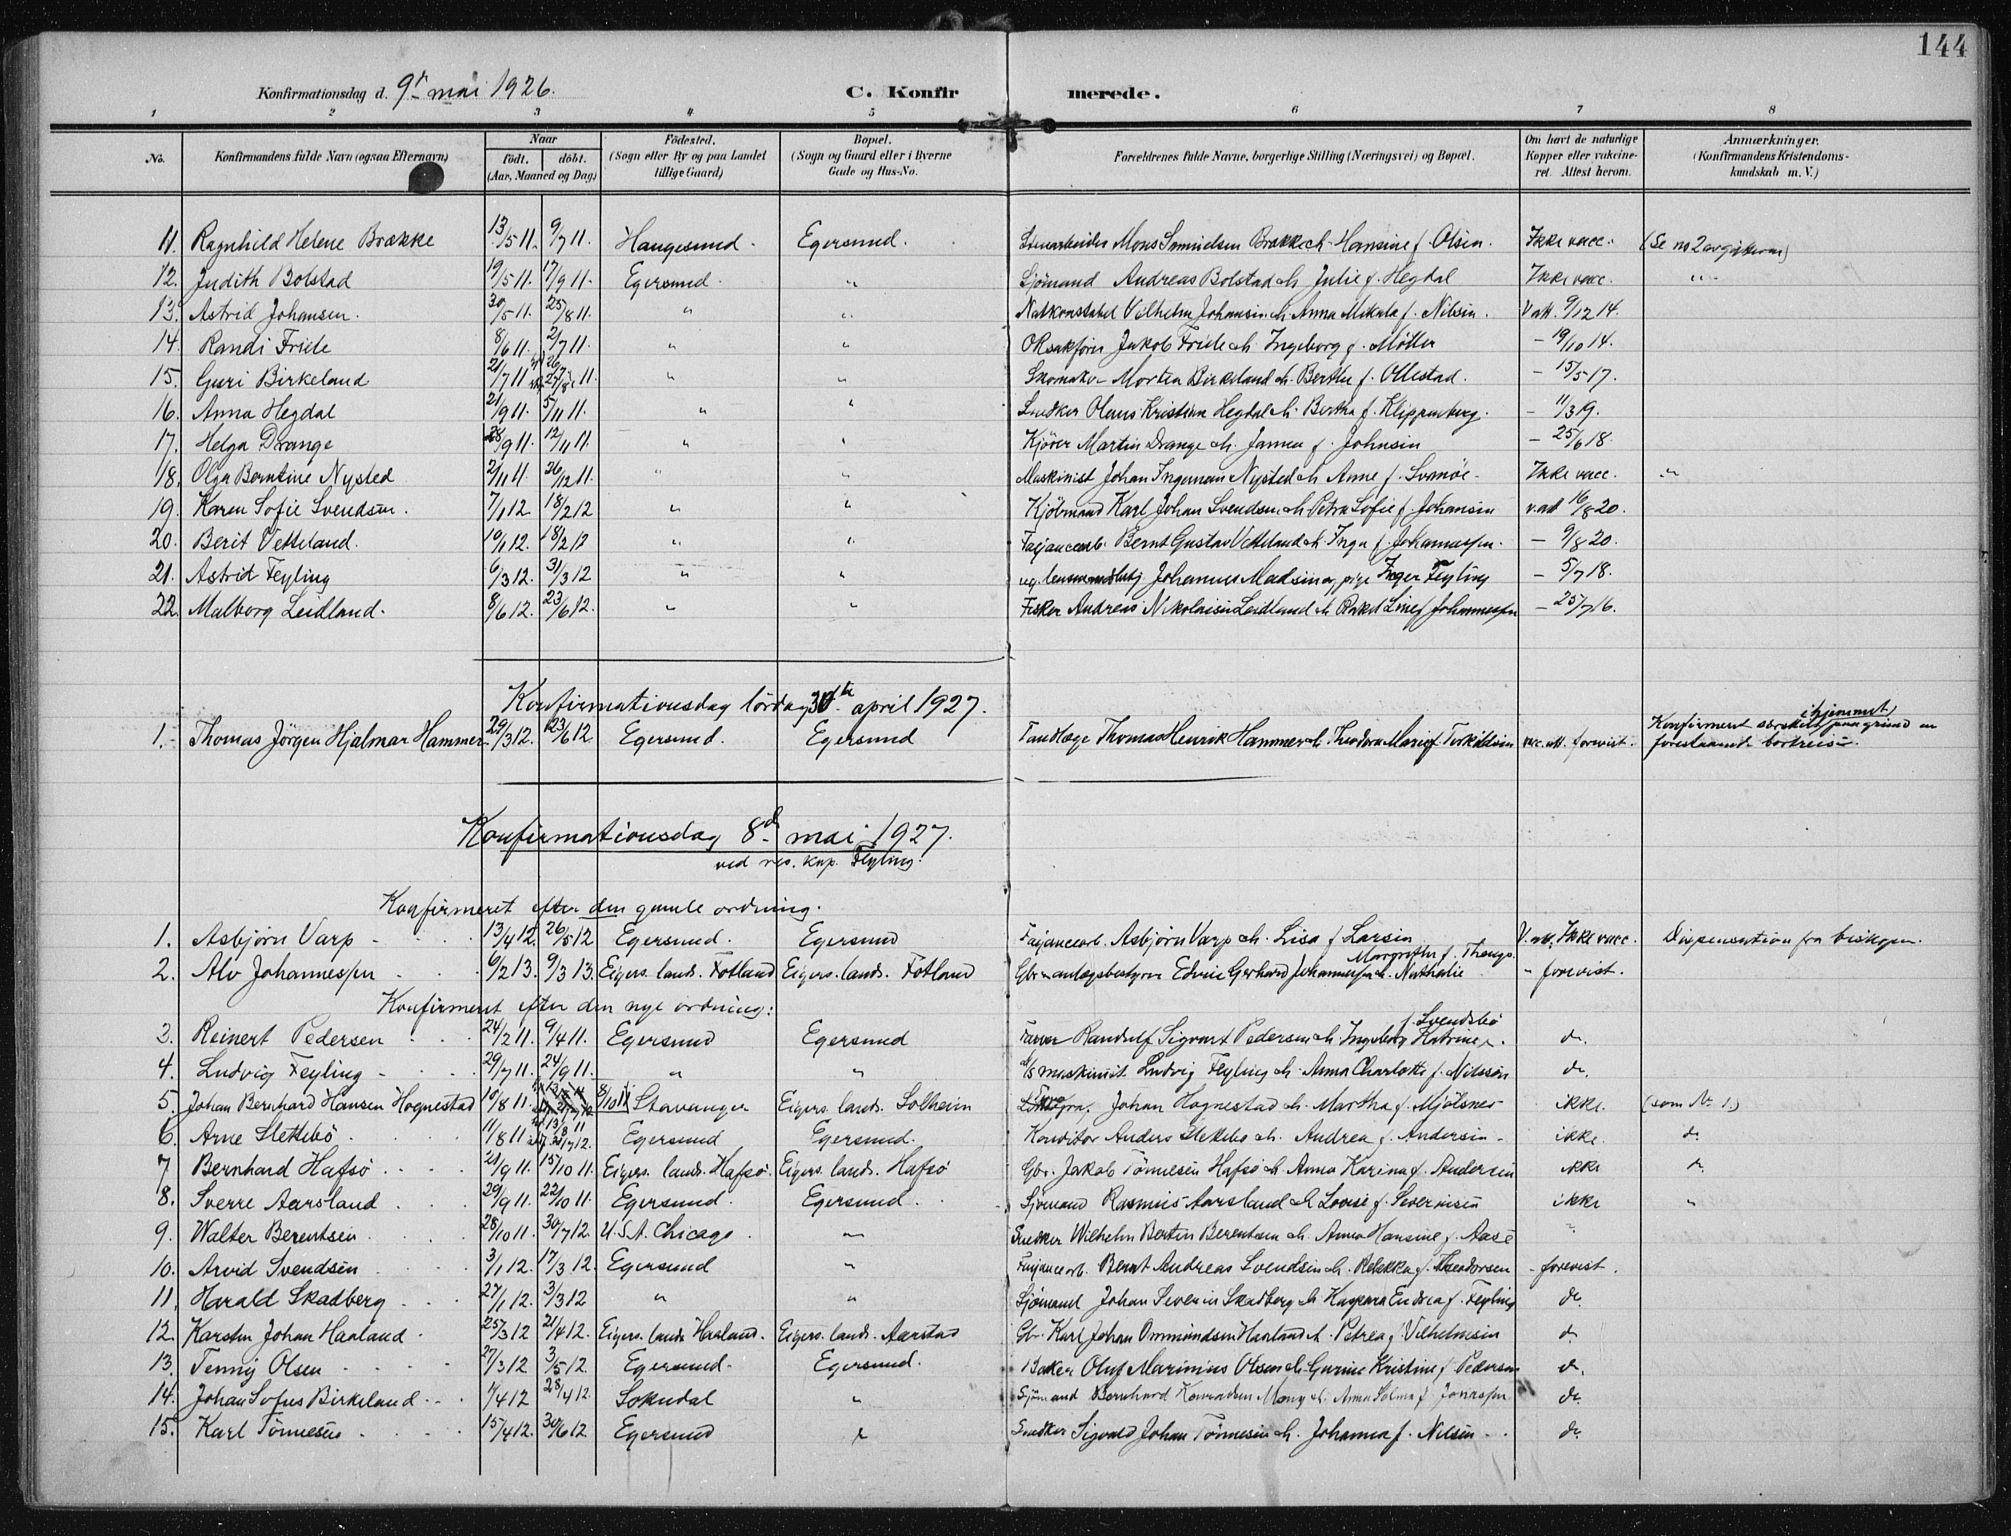 144
Konfirmationsdag d. 9de mai 1926.
C. Konfir merede.
1 2 3 4 5 6 7 8
No. Konfirmandens fulde Navn (ogsaa Efternavn) Naar født. døbt. (Aar, Maaned og Dag) Fødested. (Sogn eller By og paa Landet tillige Gaard) Bopæl. (Sogn og Gaard eller i Byerne Gade og Hus-No. Forældrenes fulde Navne, borgerlige Stilling (Næringsvei) og Bopæl. Om havt de naturlige Kopper eller vakcineret. Attest herom. Anmærkninger. (Konfirmandens Kristendomskundskab m. V.)
11. Ragnhild Helene Brække 13/5 11. 9/7 11. Haugesund. Egersund. Stenarbeider Mons Samuelsen Brække h. Hansine f. Olsen. Ikke vacc. (Se no 2
12. Judith Bolstad 19/5 11. 17/9 11. Egersund. " Sjömand Andreas Bolstad h. Julie f. Hegdal Ikke vacc. "
13. Astrid Johansen. 30/5 11. 25/8 11. " " Natkonstabel Vilhelm Johansen h. Anna Mikala f. Nilsen. V att. 9/12 14.
14. Randi Friele 8/6 11. 2/7 11. " " ORsakfører Jakob Friele h. Ingeborg f. Møller - 19/10 14.
15. Guri Birkeland 21/7 11 " " Skomaker Morten Birkeland h. Berthe f. Ollestad. - 15/5 17.
16. Anna Hegdal 21/9 11. 5/11 11. " " Snedker Olaus Kristian Hegdal h. Bertha f. Klippenberg. - 11/3 19.
17. Helga Drange 28/9 11. 12/11 11. " " Kjörer Martin Drange h. Janna f. Johnsen - 25/6 18.
18. Olga Berntine Nysted 2/11 11 26/12 11. " " Maskinist Johan Ingeman Nysted h. Anne f. Svanöe Ikke vacc. "
19. Karen Sofie Svendsen. 7/1 12. 18/2 12 " " Kjöbmand Karl Johan Svendsen h. Petra Sofie f. Johansen v. att 16/8 20.
20. Berit Vetteland. 10/1 12. 18/2 12 " " Fajancearb. Bernt Gustav Vetteland h. Inga f. Johannessen. - 9/8 20.
21. Astrid Feyling 6/3 12. 31/3 12 " " Johannes Madsen og pige Inger Feyling - 5/7 18.
22. Malborg Leidland. 8/6 12. 23/6 12. " " Fisker Andreas Nikolaisen Leidland h. Rakel Line f. Johannessen - 25/7 16.
Konfirmationsdag lördag 30te april 1927.
1.- Thomas Jörgen Hjalmar Hammer 29/3 12. 23/6 12 Egersund. Egersund Tandlæge Thomas Henrik Hammer h. Theodora Marie f. Torkildsen vacc. att. forevist. Konfirmeret særskilt i hjemmet paa grund av forestaaende bortreise.
Konfirmationsdag 8de mai 1927.
ved res. kap. Feyling.
Konfirmeret efter den gamle ordning.
1. Asbjörn Varp 13/4 12. 26/5 12 Egersund. Egersund Fajancearb. Asbjörn Varp h. Lisa f. Larsen V. att. Ikke vacc. Dispensation fra biskopen.
2. Alv Johannessen 6/2 13. 9/3 13. Eigers. lands. Fotland Eigers. lands. Fotland Edvin Gerhard Johannessen h. Nathalie Margrethe f. Thengs. " forevist.
Konfirmeret efter den nye ordning:
3. Reinert Pedersen 24/2 11. 9/4 11. Egersund Egersund Farver Randulf Sigvart Pedersen h. Ingeborg Katrine f. Svendsbö do.
4. Ludvig Feyling 29/7 11. 24/9 11. " " maskinist. Ludvig Feyling h. Anna Charlotte f. Nilssön do.
5. Johan Bernhard Hansen Hognestad 10/8 11. 8/10 11 Stavanger Eigers. lands. Solheim Johan Hognestad h. Martha f. Mjölsnes ikke. (som Nr. 1.)
6. Arne Slettebö 11/8 11 Egersund Egersund. Konditor Anders Slettebö h. Andrea f. Andersen ikke. do.
7 Bernhard Hafsö 21/9 11. 15/10 11. Eigers. lands. Hafsö. Eigers. lands. Hafsö Gbr. Jakob Tönnesen Hafsö h. Anna Karina f. Andersen ikke "
8. Sverre Aarsland 29/9 11. 22/10 11. Egersund Egersund. Sjömand Rasmus Aarsland h. Lovise f. Severinsen ikke "
9. Walter Berentsen 28/10 11. 30/7 12. U.S.A. Chicago. " Snedker Wilhelm Bertin Berentsen h. Anna Hansine f. Aase "
10. Arvid Svendsen 3/1 12. 17/3 12. Egersund " Fajancearb. Bernt Andreas Svendsen h. Rebekka f. Theodorsen - forevist.
11. Harald Skadberg 27/1 12. 3/3 12 " " Sjömand Johan Severin Skadberg h. Kaspara Endrea f. Feyling do.
12. Karsten Johan Haaland 25/3 12 21/4 12. Eigers. lands Haaland. Eigers. lands. Aarstad Gbr. Karl Johan Ommundsen Haaland h. Petrea f. Vilhelmsen do
13. Tenny Olsen 27/3 12 3/5 12. Egersund. Egersund. Baker Oluf Marinius Olsen h. Gurine Kristine f. Pedersen do.
14. Johan Sofus Birkeland /4 12 28/4 12. Sokndal " Sjömand Bernhard Konradsen Mong h. Anna Selma f. Jonassen do.
15. Karl Tönnesen 15/4 12. 30/6 12 Egersund " Snedker Sigvald Johan Tönnesen h. Johanna f. Nilsen. do.